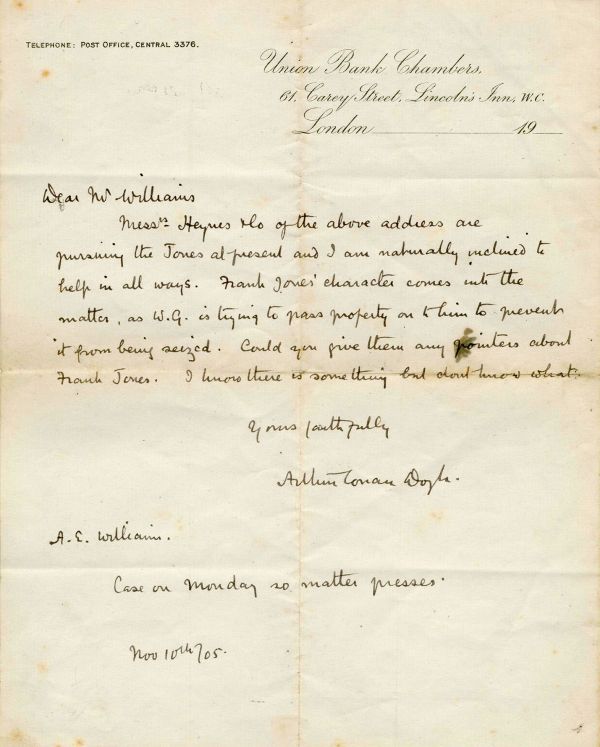 TELEPHONE: POST OFFICE, CENTRAL 3376.
Union Bank Chambers,
61, Carey Street, Lincoln's Inn, W.C.
London 19
Dear Mr Williams
Messrs Heynes & Co of the above address are
pursuing the Jones at present and I am naturally inclined to
help in all ways. Frank Jones' character comes into the
matter, as W.G. is trying to pass property on to him to prevent
it from being seized. Could you give them any pointers about
Frank Jones. I know there is something but dont know what.
Yours faithfully
Arthur Conan Doyle.
A. E. Williams.
Case on Monday so matter presses.
Nov 10th/05.